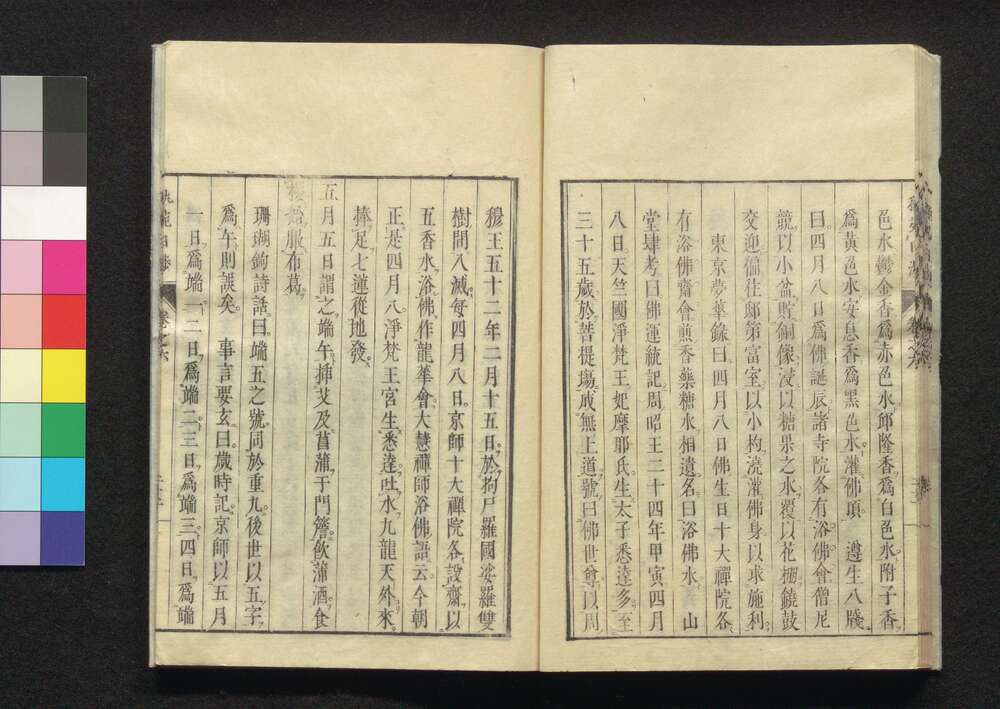 色水鬱金香爲赤色水邱隆香爲白色水附子香
爲黃色水安息香爲黑色水灌佛頂　遵生八牋
曰四月八日爲佛誕辰諸寺院各有浴佛會僧尼
競以小盆貯銅像浸以糖果之水覆以花棚鐃鼓
交迎徧往邸第富室以小杓澆灌佛身以求施利
東京夢華錄曰四月八日佛生日十大禪院各
有浴佛齋會煎香藥糖水相遺名曰浴佛水　山
堂肆考曰佛運統記周昭王二十四年甲寅四月
八日天竺國淨梵王妃摩耶氏生太子悉逹多至
三十五歲於菩提場成無上道號曰佛世尊以周
穆王五十二年二月十五日於拘尸羅國娑羅雙
樹間入滅每四月八日京師十大禪院各設齋以
五香水浴佛作龍華會大慧禪師浴佛語云今朝
正是四月八淨梵王宮生悉逹吐水九龍天外來
捧足七蓮從地發
五月五日謂之端午揷艾及菖蒲于門簷飮蒲酒食
糉始服布葛
珊瑚鉤詩話曰端五之號同於重九後世以五字
爲午則誤矣　事言要玄曰歲時記京師以五月
一日爲端一二日爲端二三日爲端三四日爲端
卷之六